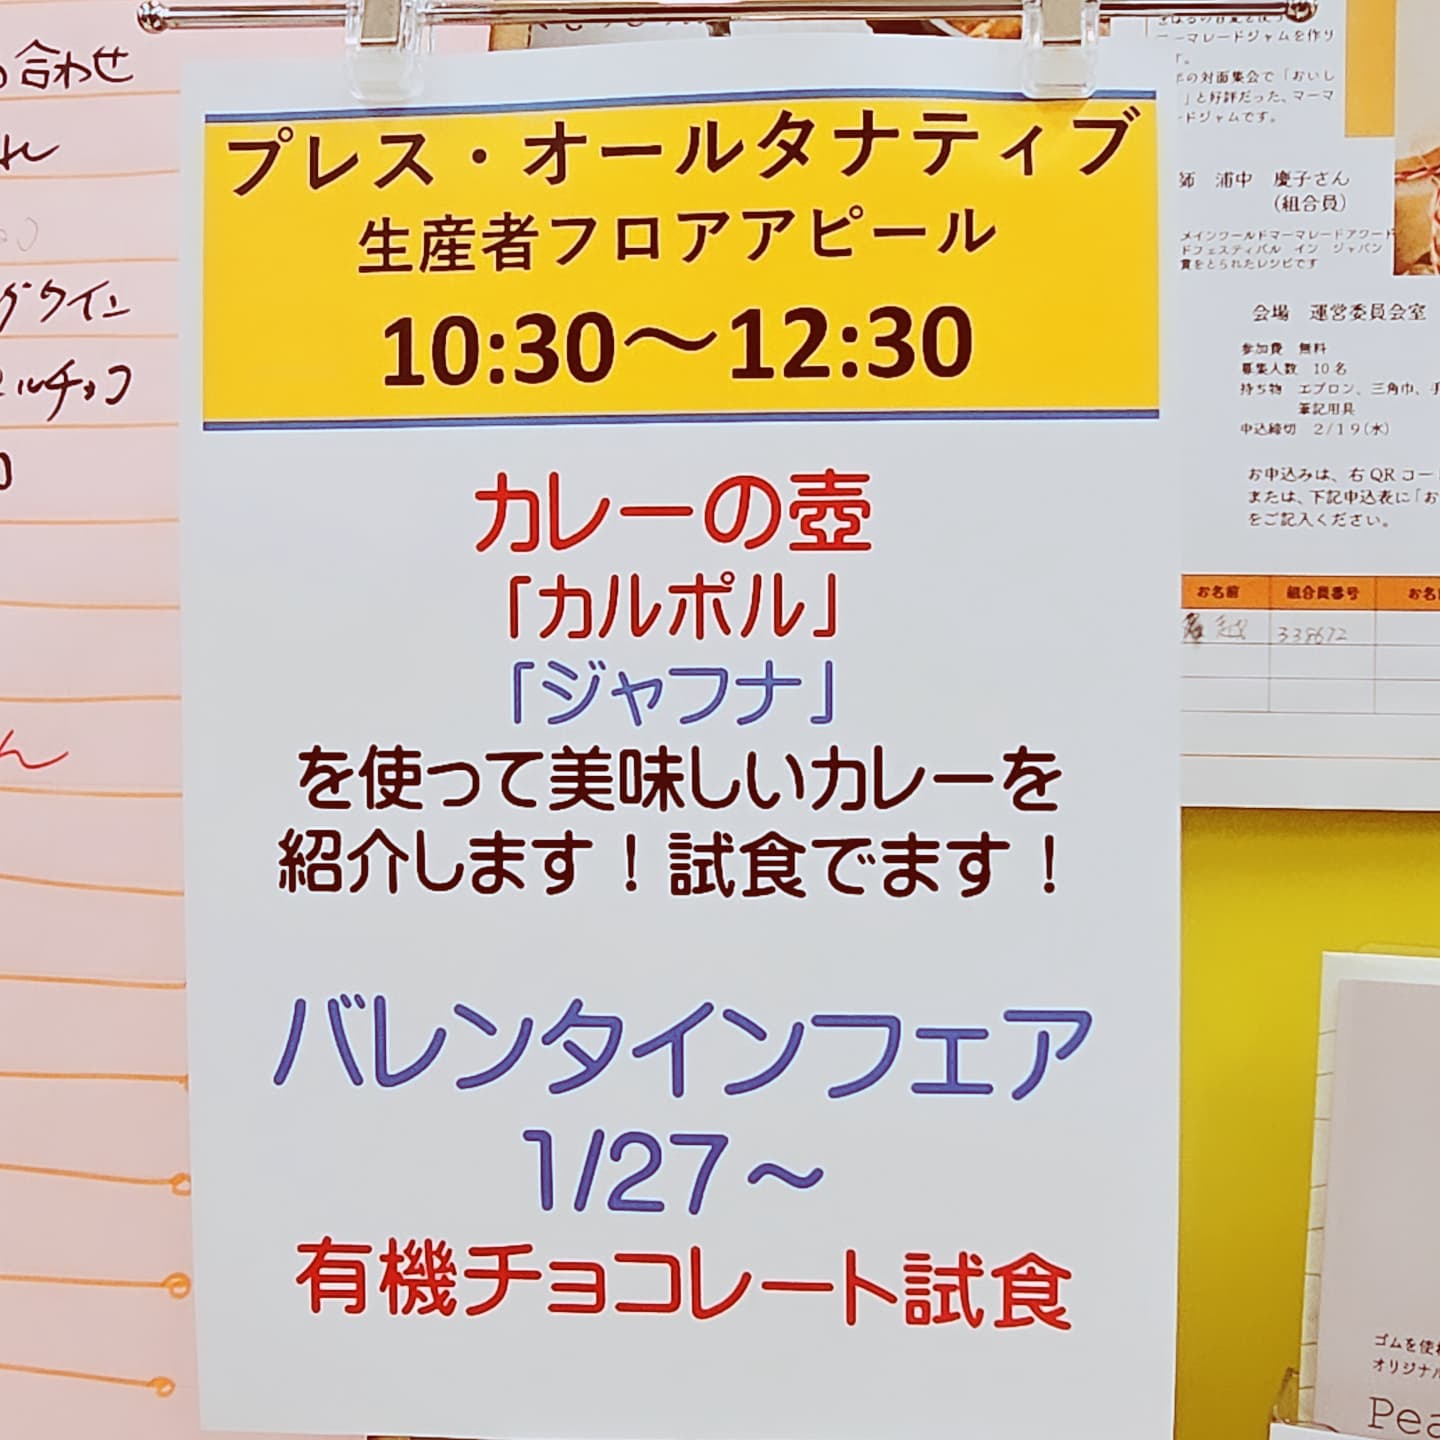 プレス・オールタナティブ
生産者フロアアピール
10:30～12:30
カレーの壺
「カルポル」
「ジャフナ」
を使って美味しいカレーを
紹介します！試食でます！
バレンタインフェア
1/27～
有機チョコレート試食
合わせ
ーマレードジャムを作り
の対面集会で「おいし
」と好評だった、マーマ
ードジャムです。
師 浦中 慶子さん
（組合員）
メインワールドマーマレードアワード
ドフェスティバル イン ジャパン
賞をとられたレシピです
会場 運営委員会室
参加費 無料
募集人数 10名
持ち物 エプロン、三角巾、手
筆記用具
申込締切 2/19(水)
お申込みは、右QRコー
または、下記申込表に「お
をご記入ください。
お名前 組合員番号 お名
338672
ゴムを使
オリジナル
Pea